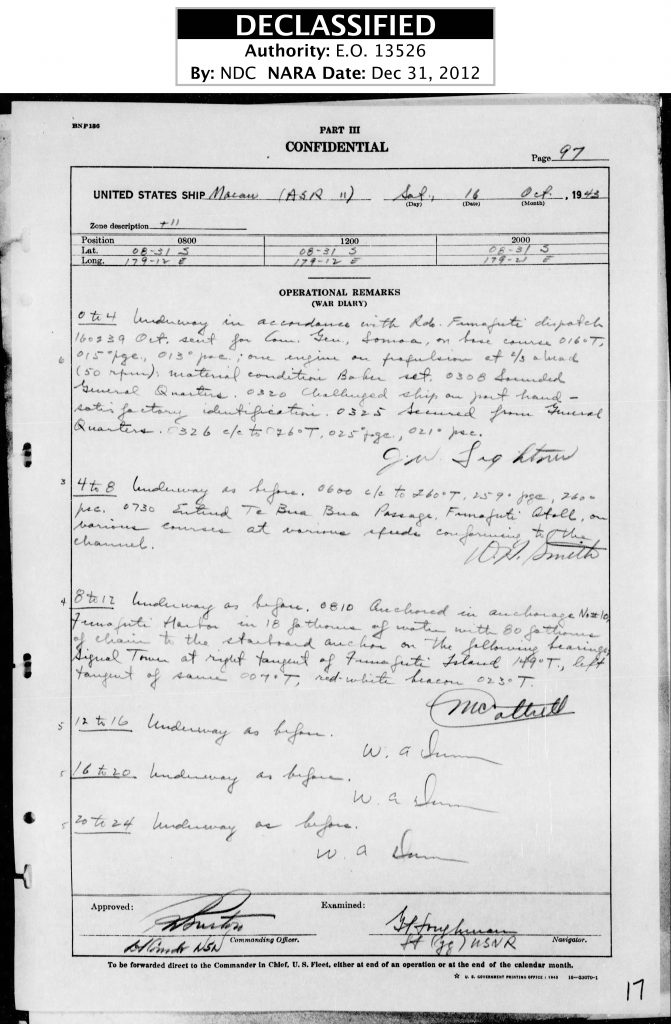 DECLASSIFIED
Authority: E.O. 13526
By: NDC NARA Date: Dec 31, 2012
BNP186
PART III
CONFIDENTIAL
Page 97
UNITED STATES SHIP Macaw (ASR 11) Sat., 16 Oct., 1943
(Day) (Date) (Month)
Zone description +11
Position 0800 1200 2000
Lat. 08-31 S 08-31 S 08-31 S
Long. 179-12 E 179-12 E 179-21 E
OPERATIONAL REMARKS
(WAR DIARY)
0 to 4 Underway in accordance with Rdo. Funafuti dispatch
160239 Oct. sent for Com. Gen. Samoa, on base course 016°T,
6 015° pgc., 013° psc.; one engine on propulsion at 2/3 ahead
(50 rpm); material condition Baker set. 0308 Sounded
General Quarters. 0320 Challenged ship on port hand -
satisfactory identification. 0325 Secured from General
Quarters. 0326 c/c to 026°T, 025° pgc, 021° psc.
J.W.
3 4 to 8 Underway as before. 0600 c/c to 260°T, 259° pgc, 260°
psc. 0730 Entered Te Bua Bua Passage, Funafuti Atoll, on
various courses at various speeds conforming to the
channel.
Smith
4 8 to 12 Underway as before. 0810 Anchored in anchorage No#
Funafuti Harbor in 18 fathoms of water with 80 fathoms
of chain to the starboard anchor on the following bearings;
Signal Tower at right tangent of Funafuti Island 149°T., left
tangent of same 007°T, red-white beacon 023°T.
McCottrell
5 12 to 16 Underway as before.
W. A. Dunn
5 16 to 20 Underway as before.
W. A. Dunn
5 20 to 24 Underway as before.
W. A. Dunn
Approved:
Examined:
USN Commanding Officer.
Lt (jg) USNR Navigator.
To be forwarded direct to the Commander in Chief, U. S. Fleet, either at end of an operation or at the end of the calendar month.
☆ U. S. GOVERNMENT PRINTING OFFICE : 1943 16—33070-1
17